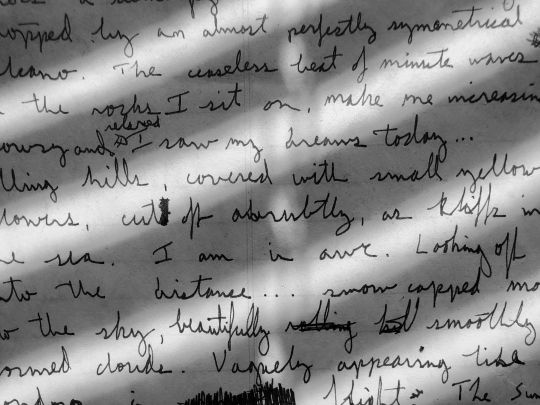 topped by an almost perfectly symmetrical
lcano. The ceaseless beat of minute waves
the rocks I sit on, make me increasin
relaxed
owsy and I saw my dreams today...
lling hills, covered with small yellow
lowers, cut off abruptly, as cliffs in
e sea. I am in awe. Looking off
nto the distance... snow capped mo
the sky, beautifully smoothly
ormed clouds. Vaguely appearing like
flight. The Sun